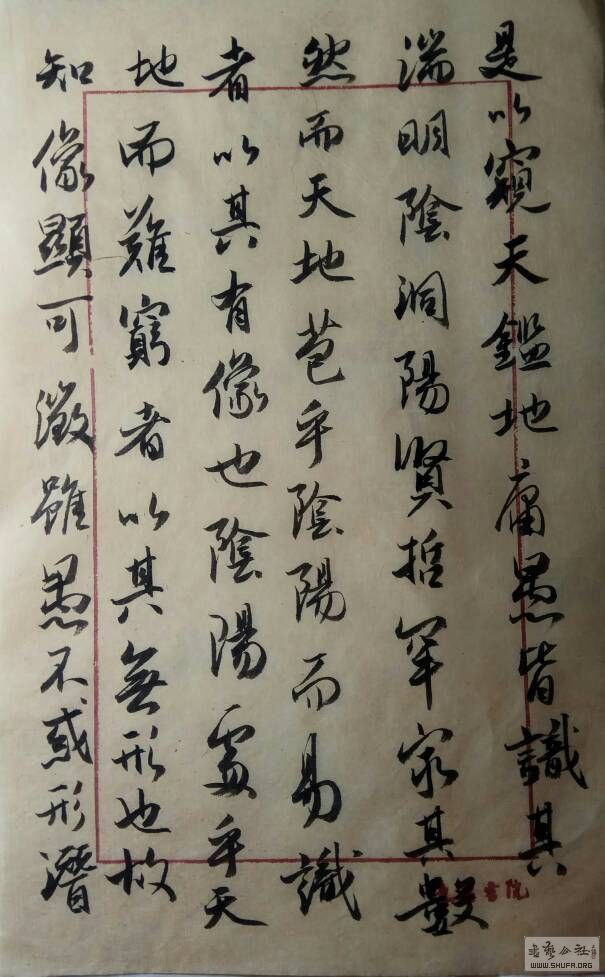 是以窺天鑑地庸愚皆識其
湍明陰洞陽賢哲罕窮其數
然而天地苞乎陰陽而易識
者以其有像也陰陽處乎天
地而難窮者以其無形也故
知像顯可徵雖愚不惑形潛
書院
WWW.SHUFA.ORG